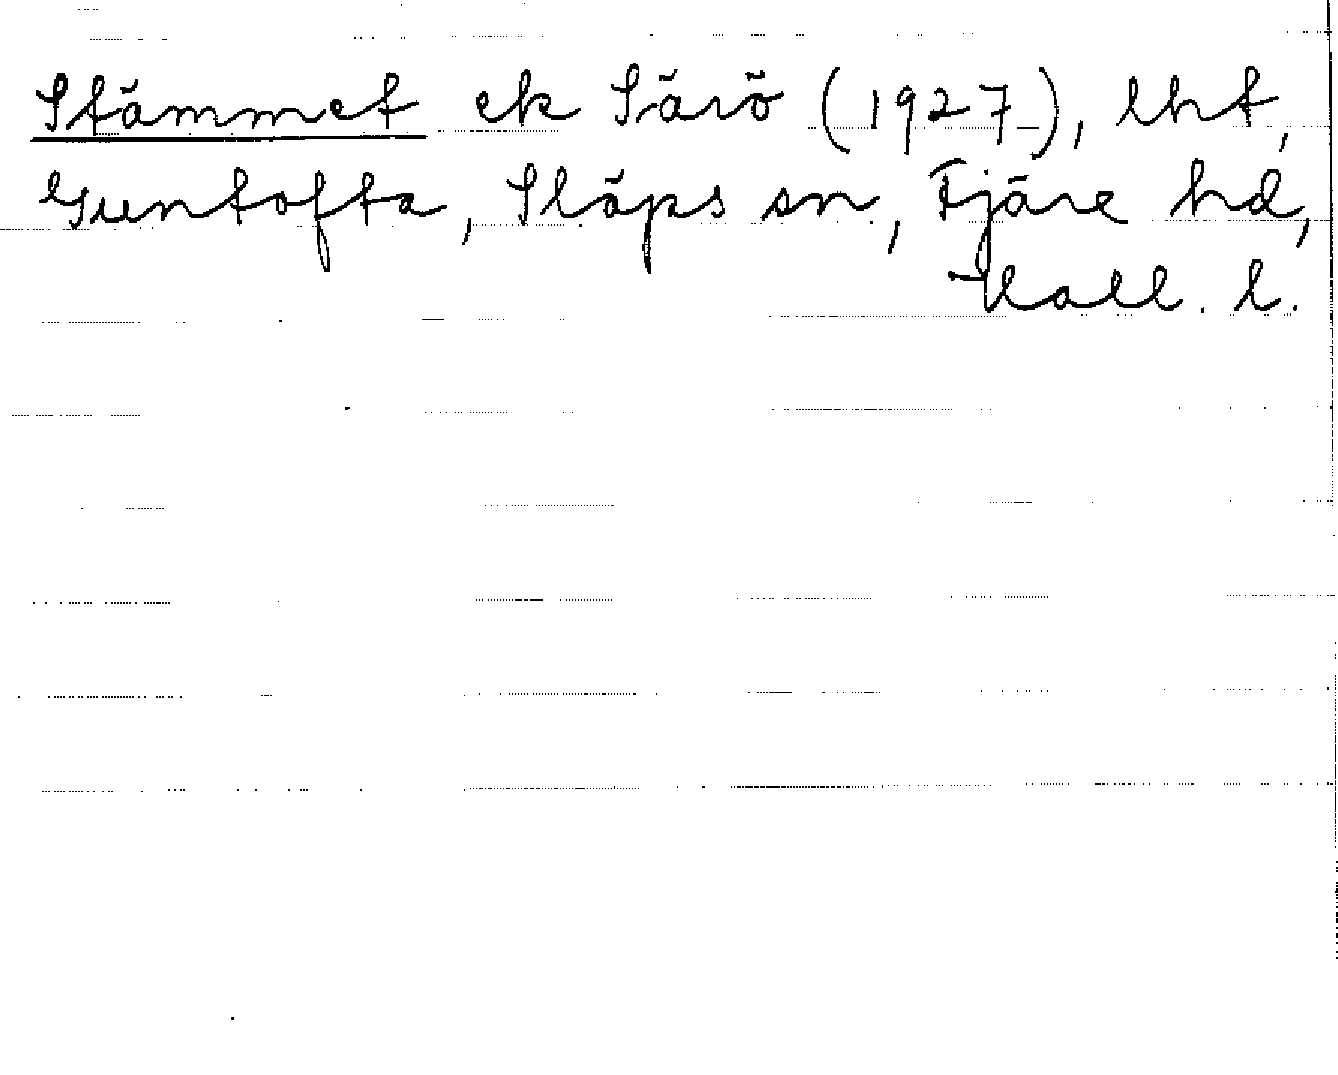 Stämmet ek Särö (1927), lht,
Guntofta, Släps sn, Fjäre hd,
Hall. l.